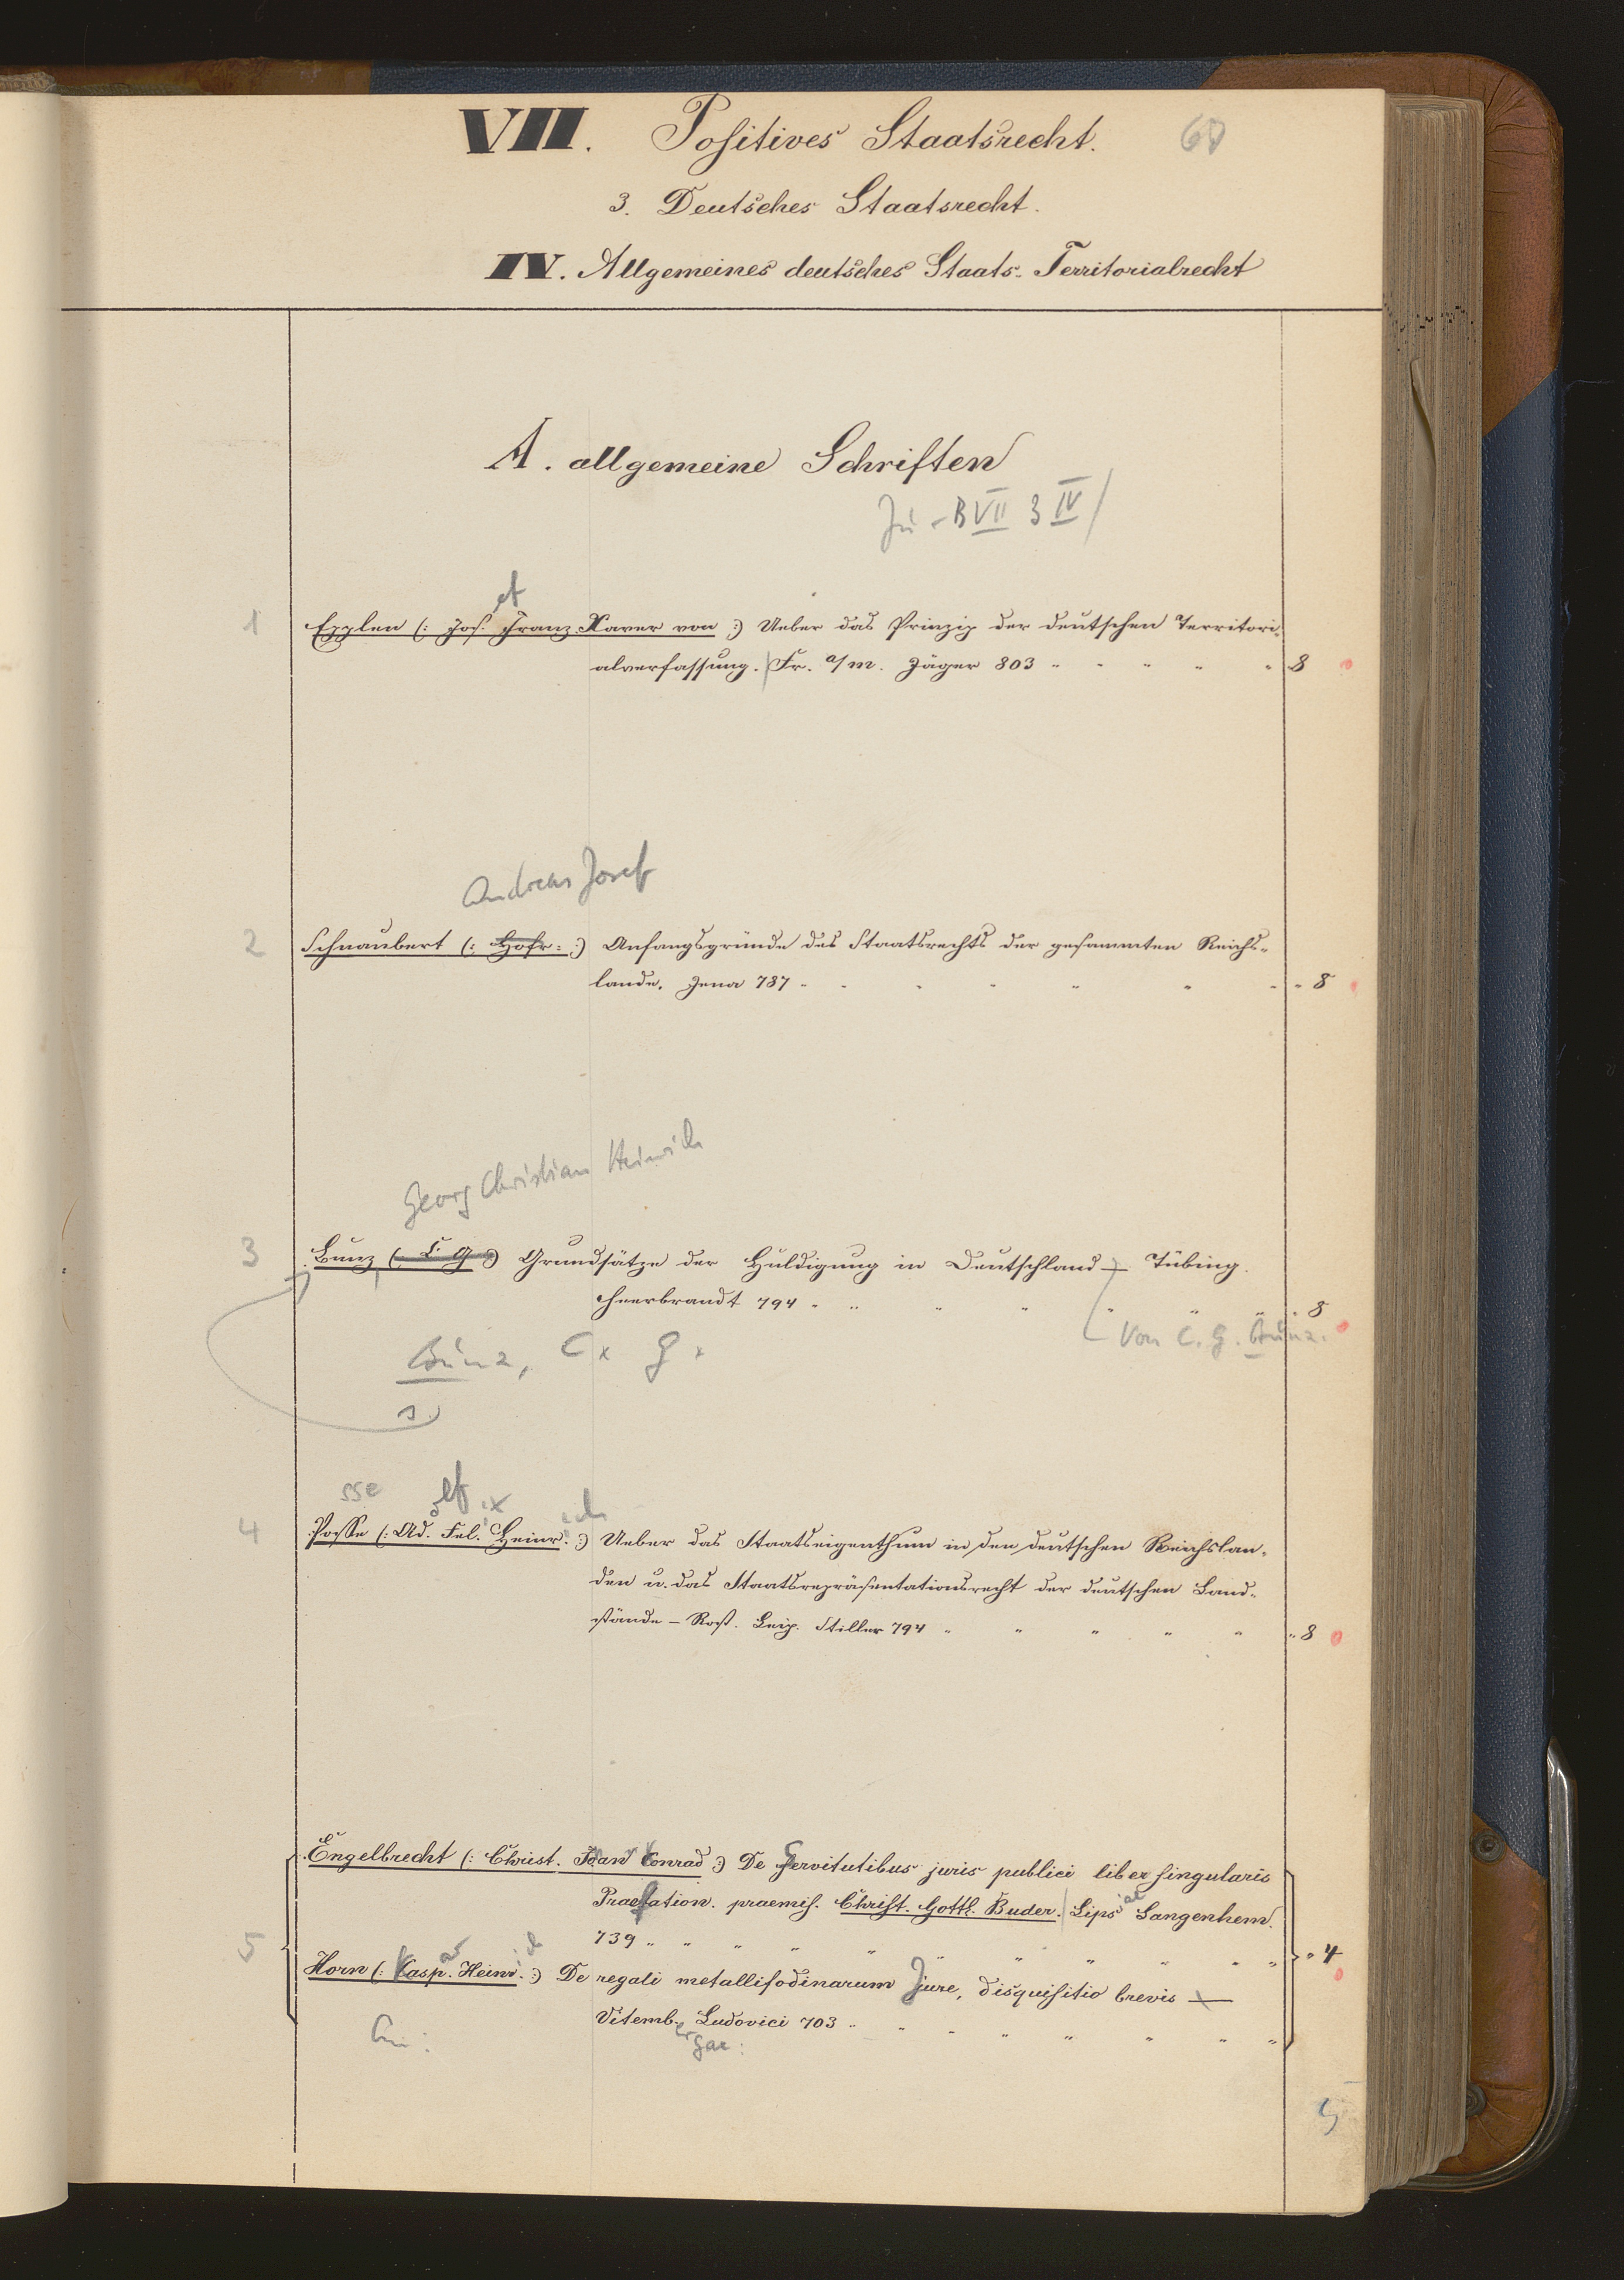 VII. Positives Staatsrecht. 60
3. Deutsches Staatsrecht.
IV. Allgemeines deutsches Staats-Territorialrecht
A. allgemeine Schriften
B VII 3 IV
ef
1 Epplen (: Jos. Franz Xaver von :) Ueber das Prinzip der deutschen Territori-
alverfassung. Fr. a/m. Jäger 803 " " " " " 8
Andreas Josef
2 Schnaubert (: Hofr: :) Anfangsgründe des Staatsrechts der gesammten Reichs-
lande. Jena 787 " " " " " " " " 8
Georg Christian Heinrich
3 Bunz (: C. G :) Grundsätze der Huldigung in Deutschland — Tübing.
Heerbrandt 794 " " " " " " " " 8
Von C. G. Bünz.
Bünz, C x G x
sse ef ix ich
4 Posse (: Ad. Fel. Heinr. :) Ueber das Staatseigenthum in den deutschen Reichslan-
den u. das Staatsrepräsentationsrecht der deutschen Land-
stände — Rost. Leip. Stiller 794 " " " " " " 8
Engelbrecht (: Christ. Joan Conrad :) De Servitutibus juris publici liber singularis
Praefation. praemis. Christ. Gottl. Buder. Lips iae Langenhem.
5 739 " " " " " " " " " " " 4
ar ich
Horn (: Casp. Heinr. :) De regali metallifodinarum Jure, disquisitio brevis —
Vitemb. Ludovici 703 " " " " " " " "
ergae:
5